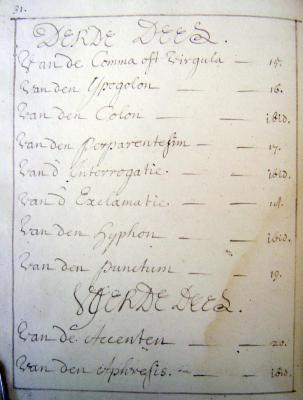 31.
DERDE DEEL.
Van de Comma oft Virgula — 15.
Van den Ypogolon — — 16.
Van den Colon — — ibid.
Van den Perparentesim — 17.
Van d' Interrogatie. — — ibid.
Van d' Exclamatie. — — 18.
Van den Hyphon — — ibid.
Van den Punctum — — 19.
VIERDE DEEL.
Van de Accenten — — 20.
Van den Aphresis. — — ibid.